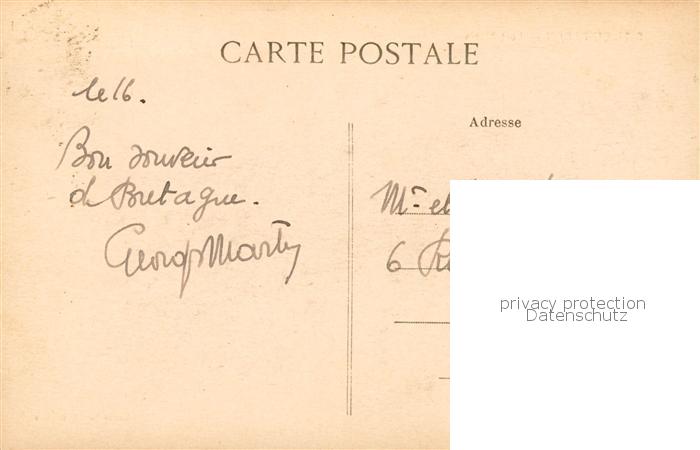 CARTE POSTALE
le 16.
Bon souvenir
de Bretagne.
Georges Marty
Adresse
Mr et
6
privacy protection
Datenschutz